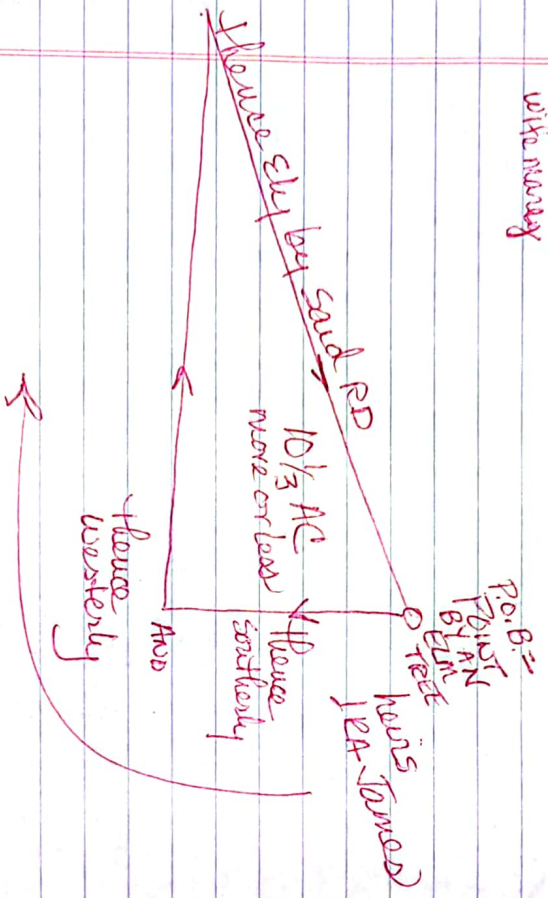 wife marey
P.O.B. =
POINT
BY AN
ELM
TREE
heirs
IRA James
thence Ely by Said RD
10 1/3 AC
more or less
thence
southerly
AND
thence
westerly